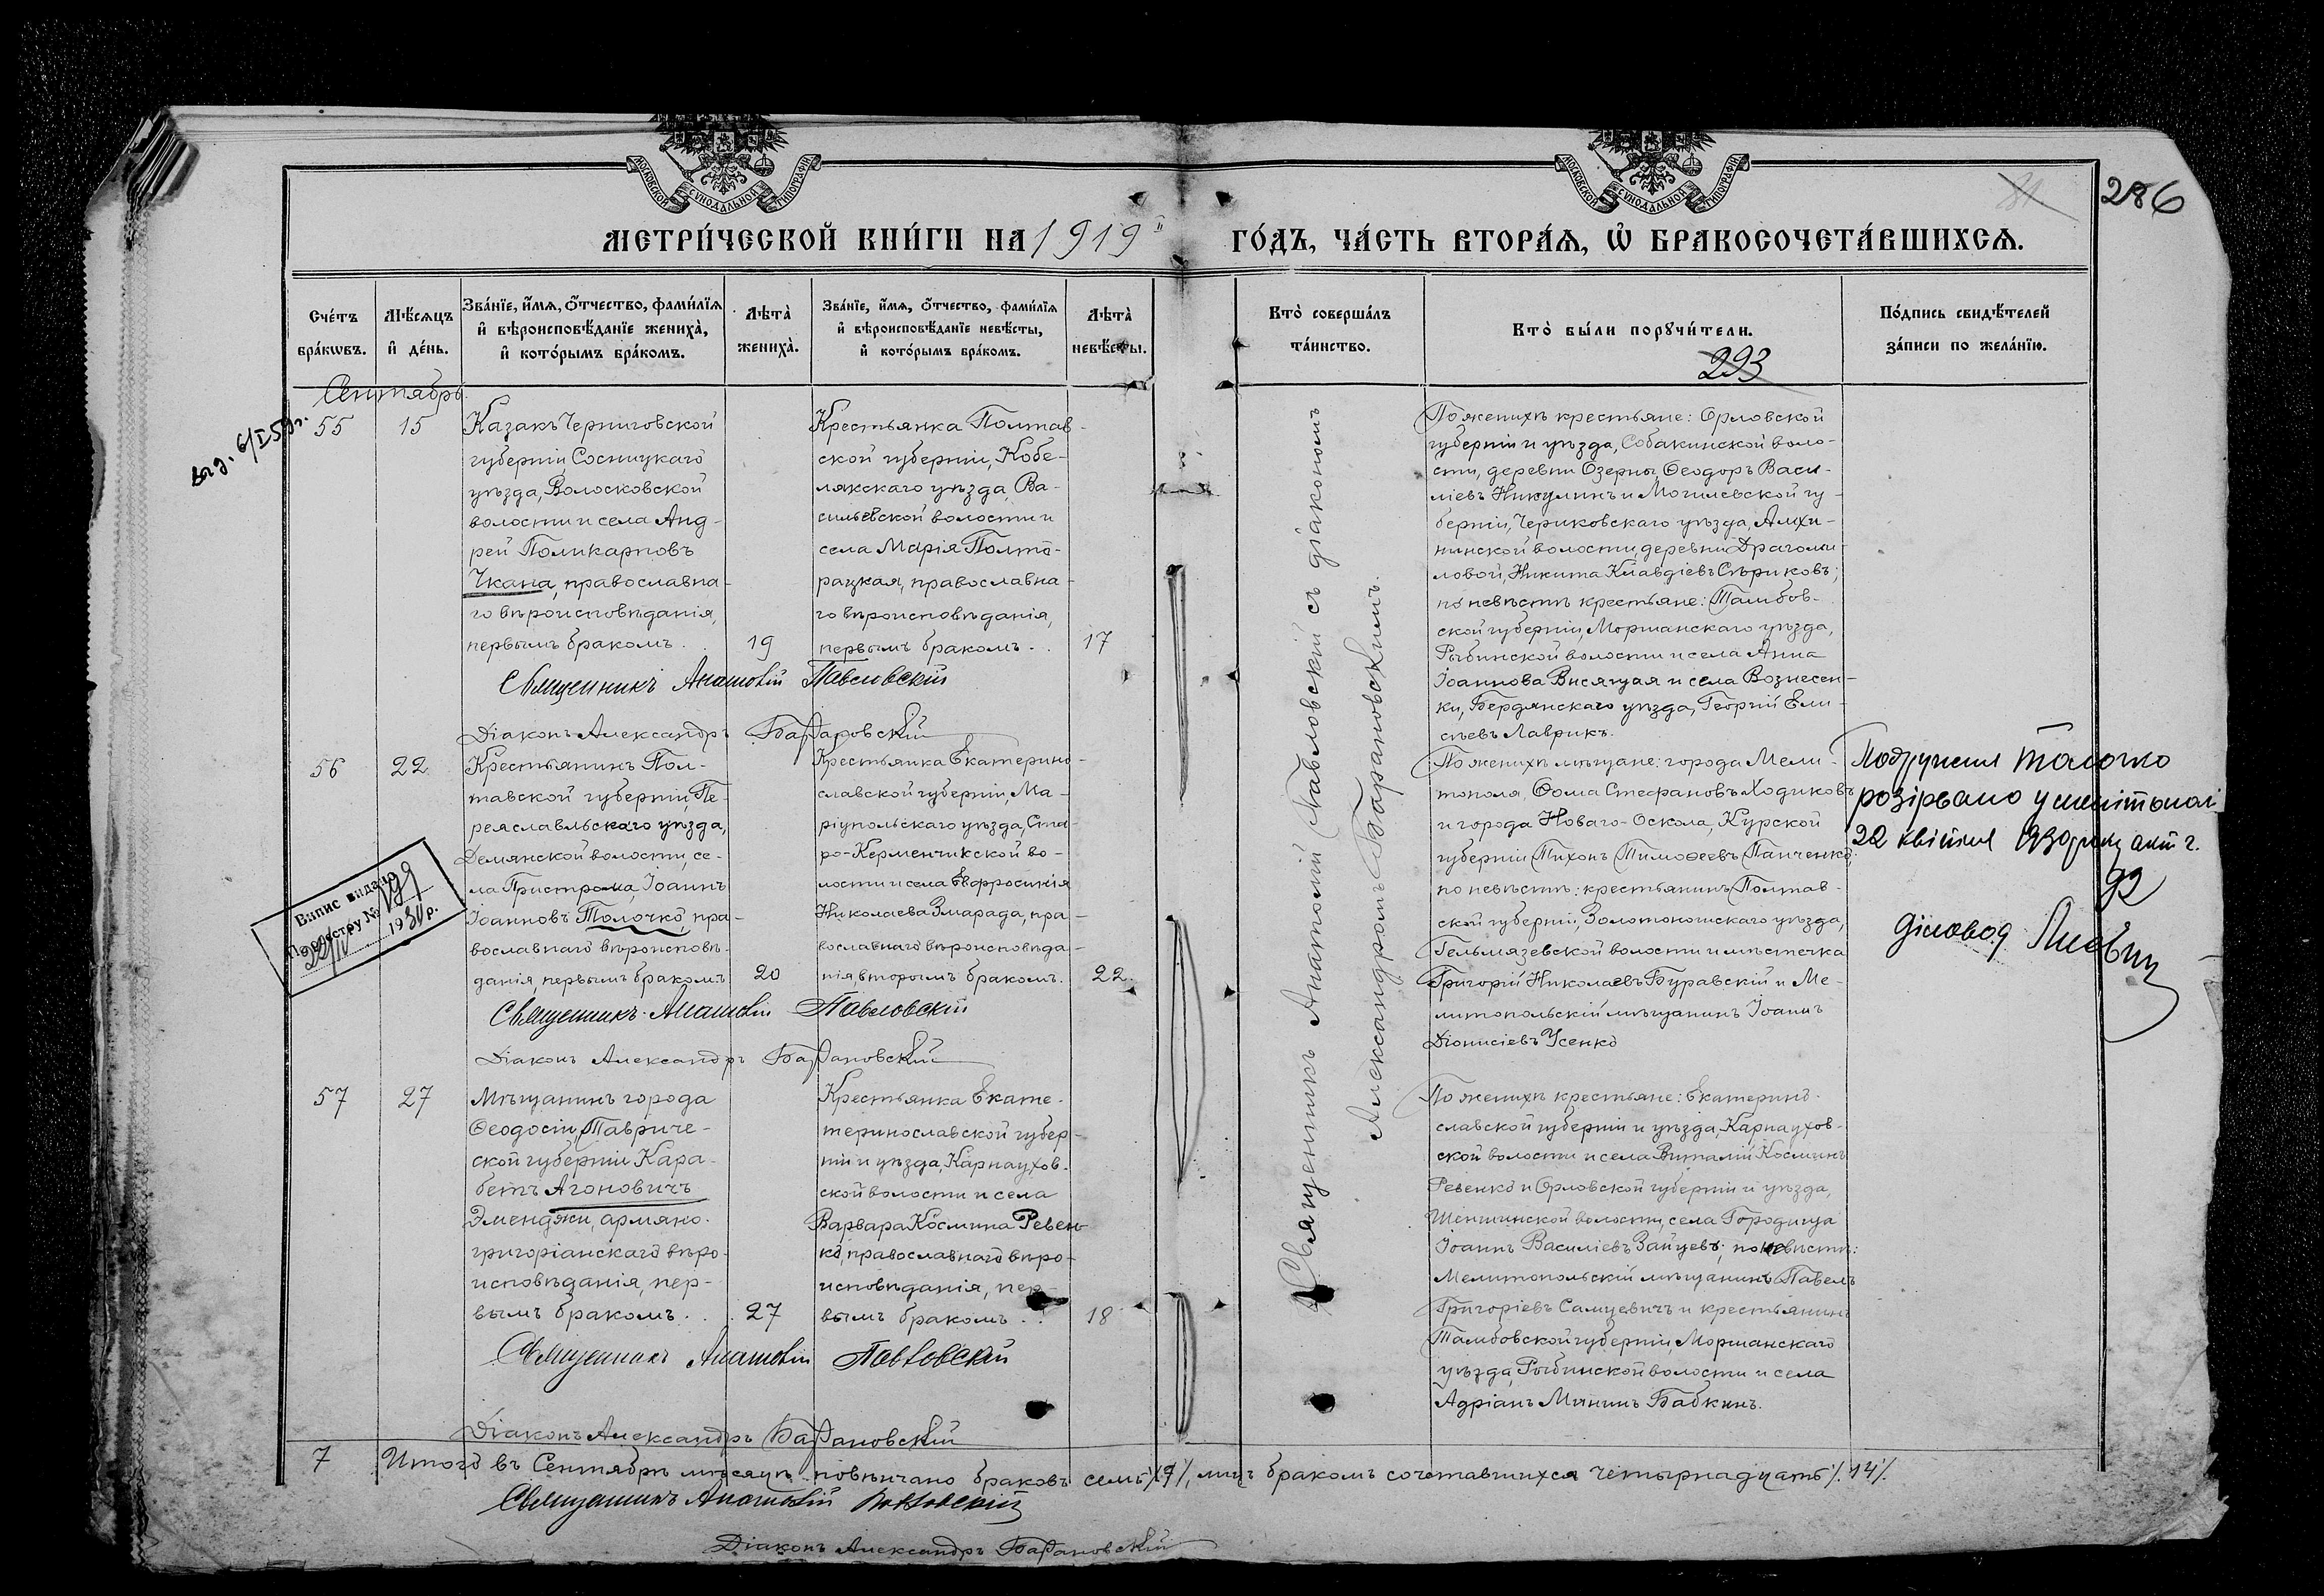 МОСКОВСКОЙ СѴНОДАЛЬНОЙ ТИПОГРАФІИ
МОСКОВСКОЙ СѴНОДАЛЬНОЙ ТИПОГРАФІИ
31
286
МЕТРИ́ЧЕСКОЙ КНИ́ГИ НА 1919
ГО́ДЪ, ЧА́СТЬ ВТОРА́Ѧ, Ѡ҆ БРАКОСОЧЕТА́ВШИХСѦ.
Сче́тъ бра́кѡвъ.
Мѣ́сѧцъ и҆ де́нь.
Зва́нїе, и҆́мѧ, ѻ҆́тчество, фами́лїѧ
и҆ вѣроисповѣ́данїе жениха̀,
и҆ кото́рымъ бра́комъ.
Лѣта̀ жениха̀.
Зва́нїе, и҆́мѧ, ѻ҆́тчество, фами́лїѧ
и҆ вѣроисповѣ́данїе невѣ́сты,
и҆ кото́рымъ бра́комъ.
Лѣта̀ невѣ́сты.
Кто̀ соверша́лъ та́инство.
Кто̀ бы́ли порꙋчи́тели.
293
По́дпись свидѣ́телей
за́писи по жела́нїю.
Сентябрь.
выд. 6/I 59г.
55
15
Казакъ Черниговской
губерніи, Сосницкаго
уѣзда, Волосковской
волости и села Анд-
рей Поликарповъ
Чкана, православна-
го вѣроисповѣданія,
первымъ бракомъ.
19
Крестьянка Полтав-
ской губерніи, Кобе-
лякскаго уѣзда, Ва-
сильевской волости и
села Марія Полто-
рацкая, православна-
го вѣроисповѣданія,
первымъ бракомъ.
17
Священникъ Анатолій Павловскій
Діаконъ Александръ Барановскій
Священникъ Анатолій Павловскій съ діакономъ
Александромъ Барановскимъ.
По женихѣ крестьяне: Орловской
губерніи и уѣзда, Собакинской воло-
сти, деревни Озерны Ѳеодоръ Васи-
ліевъ Никулинъ и Могилевской гу-
берніи, Чериковскаго уѣзда, Алхи-
нинской волости, деревни Драгоми-
ловой, Никита Клавдіевъ Сѣриковъ;
по невѣстѣ крестьяне: Тамбов-
ской губерніи, Моршанскаго уѣзда,
Рыбинской волости и села Анна
Іоаннова Висящая и села Вознесен-
ки, Бердянскаго уѣзда, Георгій Ели-
сѣевъ Лаврикъ.
56
22
Крестьянинъ Пол-
тавской губерніи, Пе-
реяславльскаго уѣзда,
Демянской волости, се-
ла Пристрома, Іоаннъ
Іоанновъ Толочко, пра-
вославнаго вѣроисповѣ-
данія, первымъ бракомъ
20
Крестьянка Екатерино-
славской губерніи, Ма-
ріупольскаго уѣзда, Ста-
ро-Керменчикской во-
лости и села Евфросинія
Николаева Змарада, пра-
вославнаго вѣроисповѣда-
нія, вторымъ бракомъ.
22.
Священникъ Анатолій Павловскій
Діаконъ Александръ Барановскій
По женихѣ мѣщане: города Мели-
тополя, Ѳома Стефановъ Ходиковъ
и города Новаго-Оскола, Курской
губерніи Тихонъ Тимоѳеевъ Панченко;
по невѣстѣ: крестьянинъ Полтав-
ской губерніи, Золотоношскаго уѣзда,
Гельмязевской волости и мѣстечка
Григорій Николаевъ Буравскій и Ме-
литопольскій мѣщанинъ Іоаннъ
Діонисіевъ Усенко
Подружжя Толочко
розірвано у
22 квітня року акт ч.
92
Діловод
Випис видано
По реєстру №
22/IV 193 р.
57
27
Мѣщанинъ города
Ѳеодосіи, Тавриче-
ской губерніи Кара-
бетъ Агоновичъ
Эменджи, армяно-
григоріанскаго вѣро-
исповѣданія, пер-
вымъ бракомъ.
27
Крестьянка Екате-
теринославской губер-
ніи и уѣзда, Карнаухов-
ской волости и села
Варвара Космина Ревен-
ко, православнаго вѣро-
исповѣданія, пер-
вымъ бракомъ.
18
Священникъ Анатолій Павловскій
Діаконъ Александръ Барановскій
По женихѣ крестьяне: Екатерино-
славской губерніи и уѣзда, Карнаухов-
ской волости и села Виталій Косминъ
Ревенко и Орловской губерніи и уѣзда,
Шеншинской волости, села Городища
Іоаннъ Василіевъ Зайцевъ; по невѣстѣ:
Мелитопольскій мѣщанинъ Павелъ
Григоріевъ Самцевичъ и крестьянинъ
Тамбовской губерніи, Моршанскаго
уѣзда, Рыбинской волости и села
Адріанъ Мининъ Бабкинъ.
7
Итого въ Сентябрѣ мѣсяцѣ повѣнчано браковъ семь /7/, лицъ бракомъ сочетавшихся четырнадцать /14/.
Священникъ Анатолій Павловскій
Діаконъ Александръ Барановскій